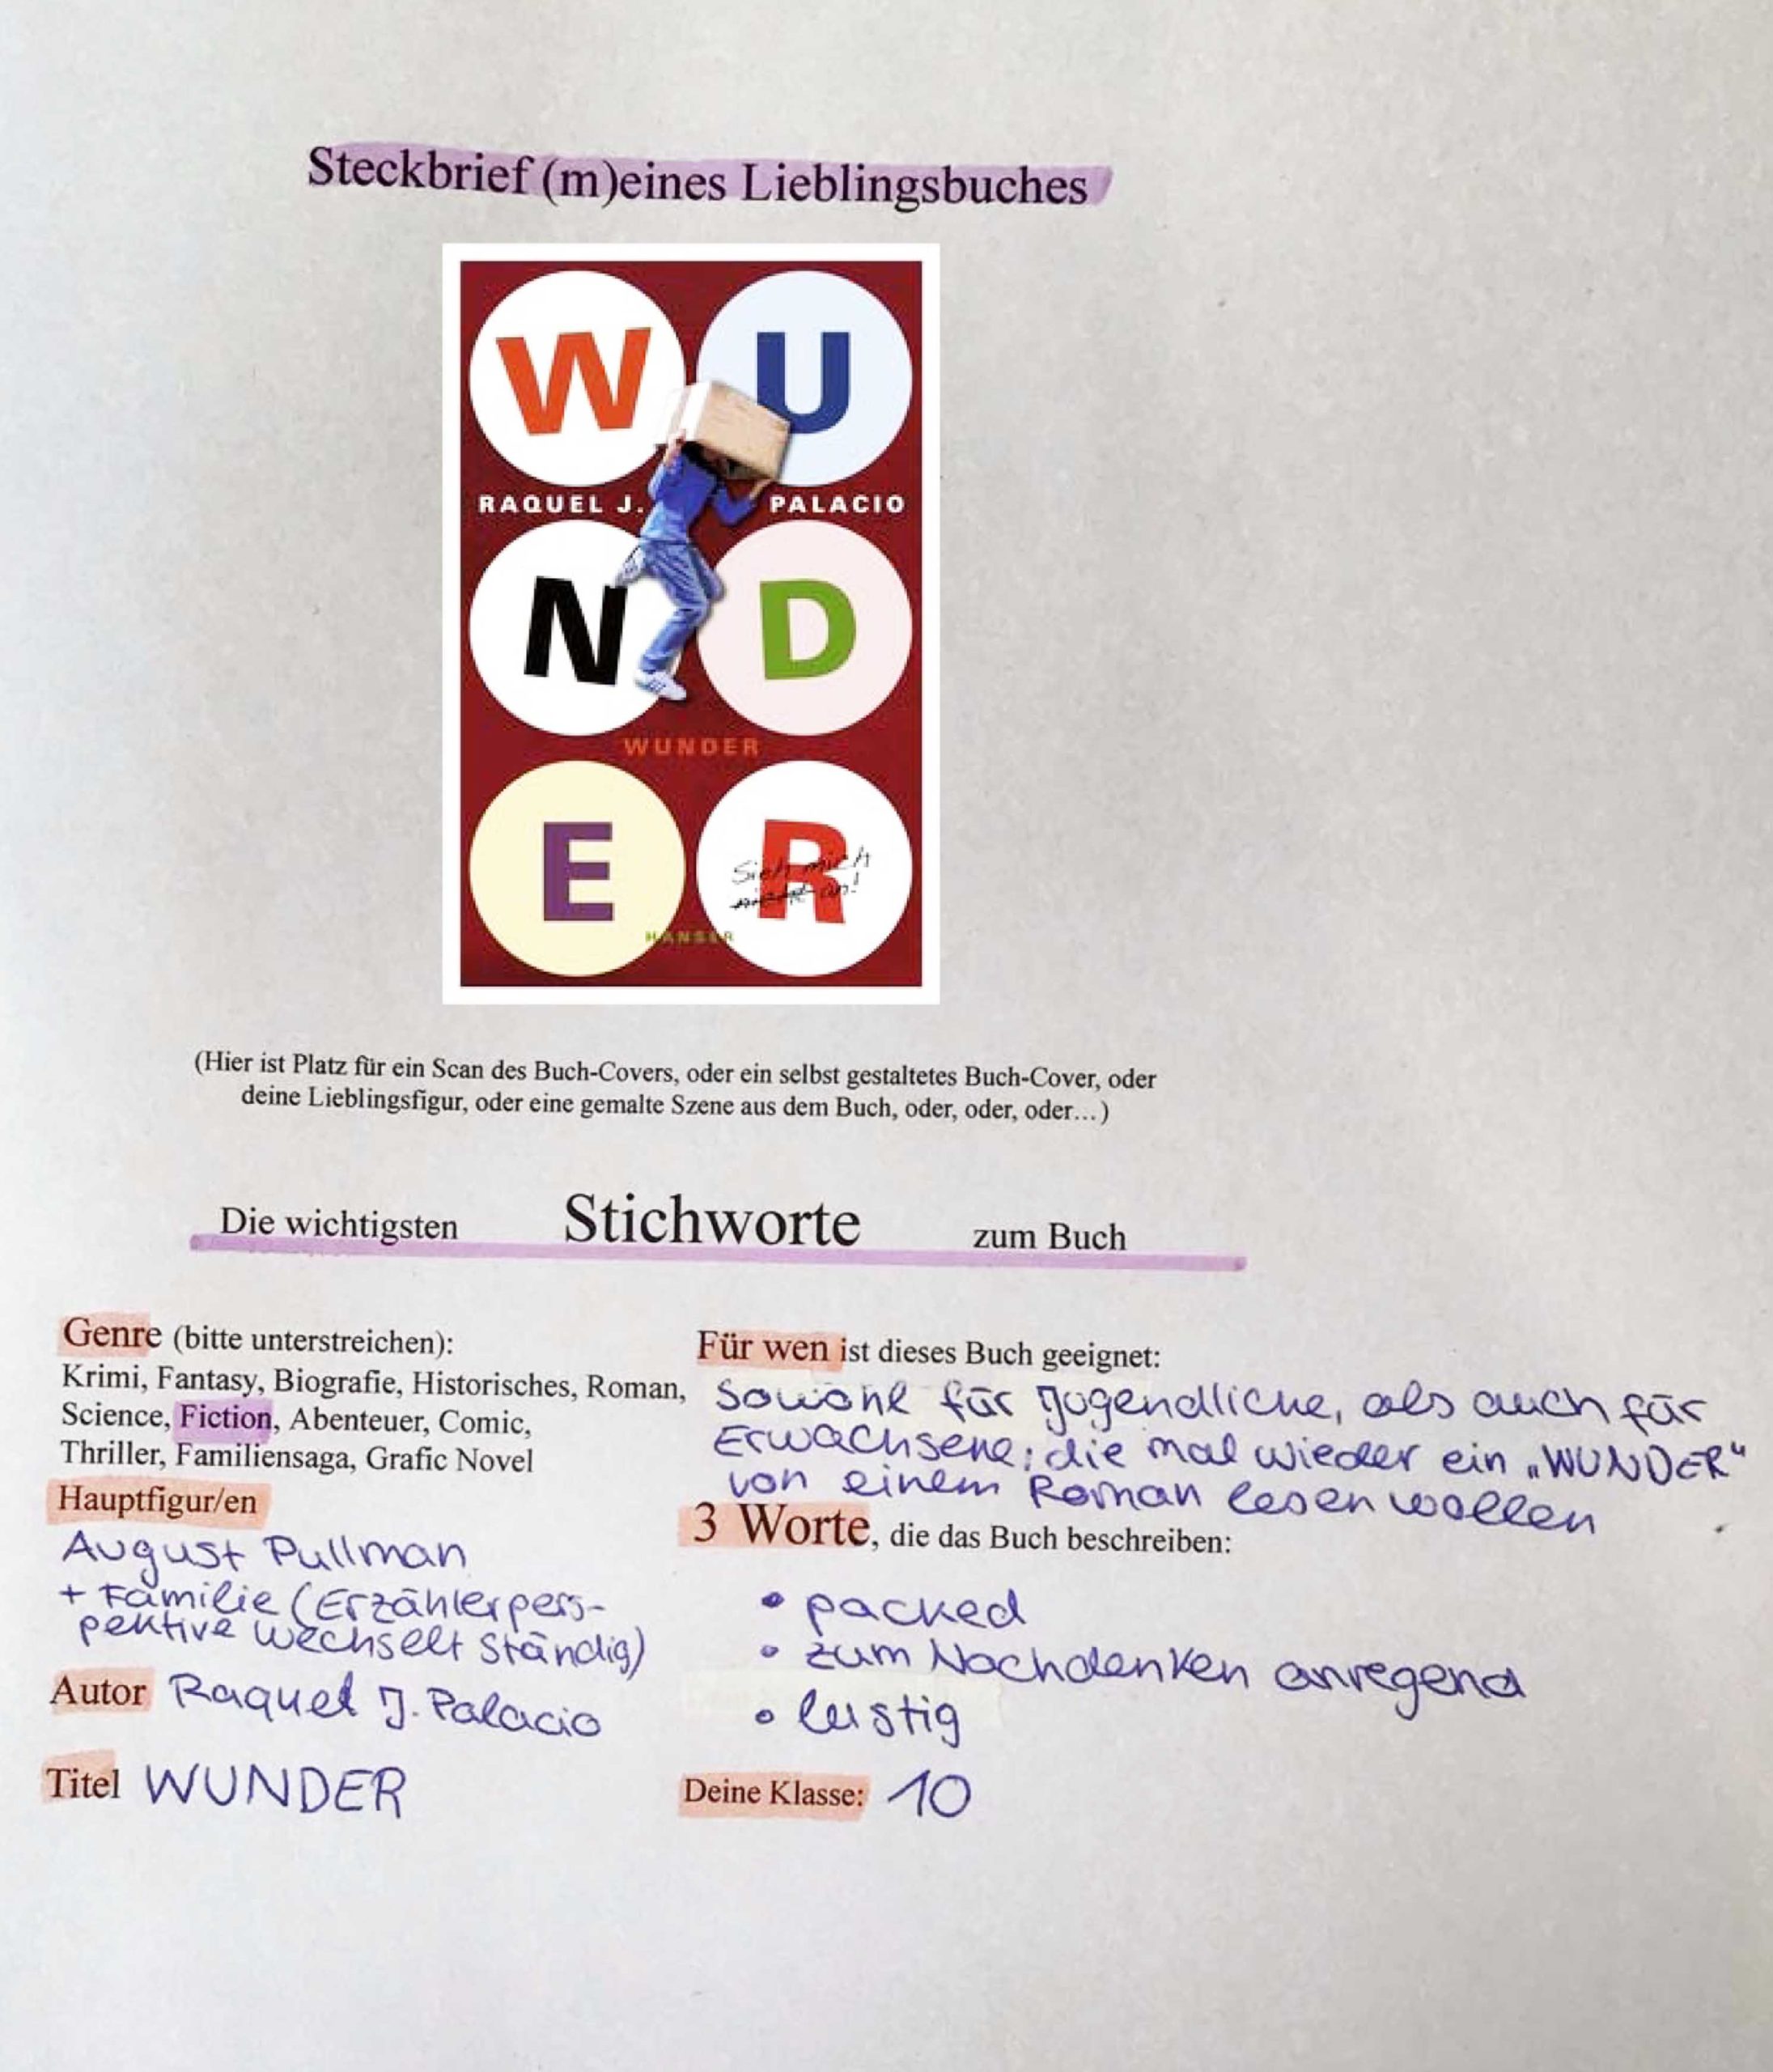 Steckbrief (m)eines Lieblingsbuches
W U
RAQUEL J. PALACIO
N D
WUNDER
E R
Sieh mich
nicht an!
HANSER
(Hier ist Platz für ein Scan des Buch-Covers, oder ein selbst gestaltetes Buch-Cover, oder
deine Lieblingsfigur, oder eine gemalte Szene aus dem Buch, oder, oder, oder...)
Die wichtigsten Stichworte zum Buch
Genre (bitte unterstreichen):
Krimi, Fantasy, Biografie, Historisches, Roman,
Science, Fiction, Abenteuer, Comic,
Thriller, Familiensaga, Grafic Novel
Hauptfigur/en
August Pullman
+ Familie (Erzählerpers-
pektive wechselt ständig)
Autor Raquel J. Palacio
Titel WUNDER
Für wen ist dieses Buch geeignet:
Sowohl für Jugendliche, als auch für
Erwachsene; die mal wieder ein „WUNDER“
von einem Roman lesen wollen
3 Worte, die das Buch beschreiben:
• packed
• zum Nachdenken anregend
• lustig
Deine Klasse: 10